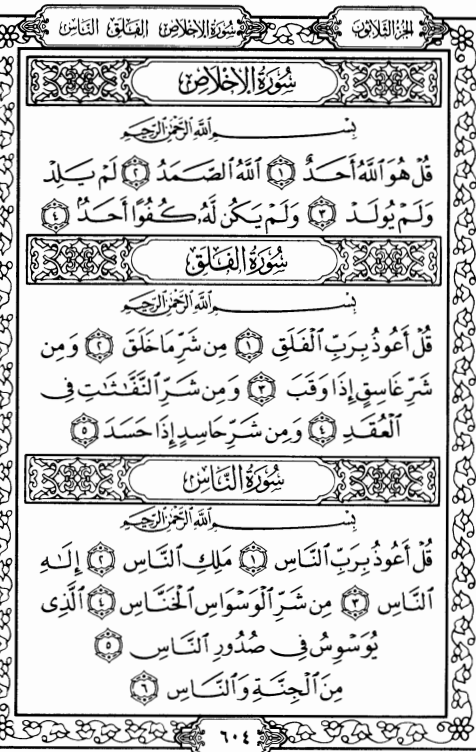 الجزء الثلاثون
سورة الإخلاص الفلق الناس
سُورَةُ الإِخْلَاصِ
بِسْمِ ٱللَّهِ ٱلرَّحْمَٰنِ ٱلرَّحِيمِ
قُلْ هُوَ ٱللَّهُ أَحَدٌ ۝١ ٱللَّهُ ٱلصَّمَدُ ۝٢ لَمْ يَلِدْ
وَلَمْ يُولَدْ ۝٣ وَلَمْ يَكُن لَّهُۥ كُفُوًا أَحَدٌۢ ۝٤
سُورَةُ الفَلَقِ
بِسْمِ ٱللَّهِ ٱلرَّحْمَٰنِ ٱلرَّحِيمِ
قُلْ أَعُوذُ بِرَبِّ ٱلْفَلَقِ ۝١ مِن شَرِّ مَا خَلَقَ ۝٢ وَمِن
شَرِّ غَاسِقٍ إِذَا وَقَبَ ۝٣ وَمِن شَرِّ ٱلنَّفَّٰثَٰتِ فِى
ٱلْعُقَدِ ۝٤ وَمِن شَرِّ حَاسِدٍ إِذَا حَسَدَ ۝٥
سُورَةُ النَّاسِ
بِسْمِ ٱللَّهِ ٱلرَّحْمَٰنِ ٱلرَّحِيمِ
قُلْ أَعُوذُ بِرَبِّ ٱلنَّاسِ ۝١ مَلِكِ ٱلنَّاسِ ۝٢ إِلَٰهِ
ٱلنَّاسِ ۝٣ مِن شَرِّ ٱلْوَسْوَاسِ ٱلْخَنَّاسِ ۝٤ ٱلَّذِى
يُوَسْوِسُ فِى صُدُورِ ٱلنَّاسِ ۝٥
مِنَ ٱلْجِنَّةِ وَٱلنَّاسِ ۝٦
٦٠٤